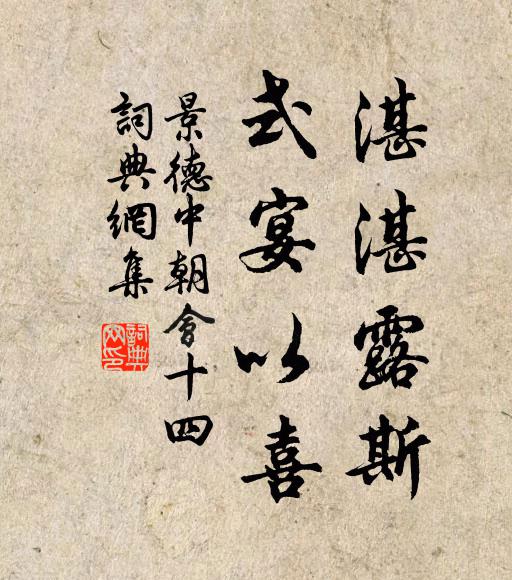 湛湛露斯
式宴以喜
景德中朝會十四
詞典網集
詞典網印